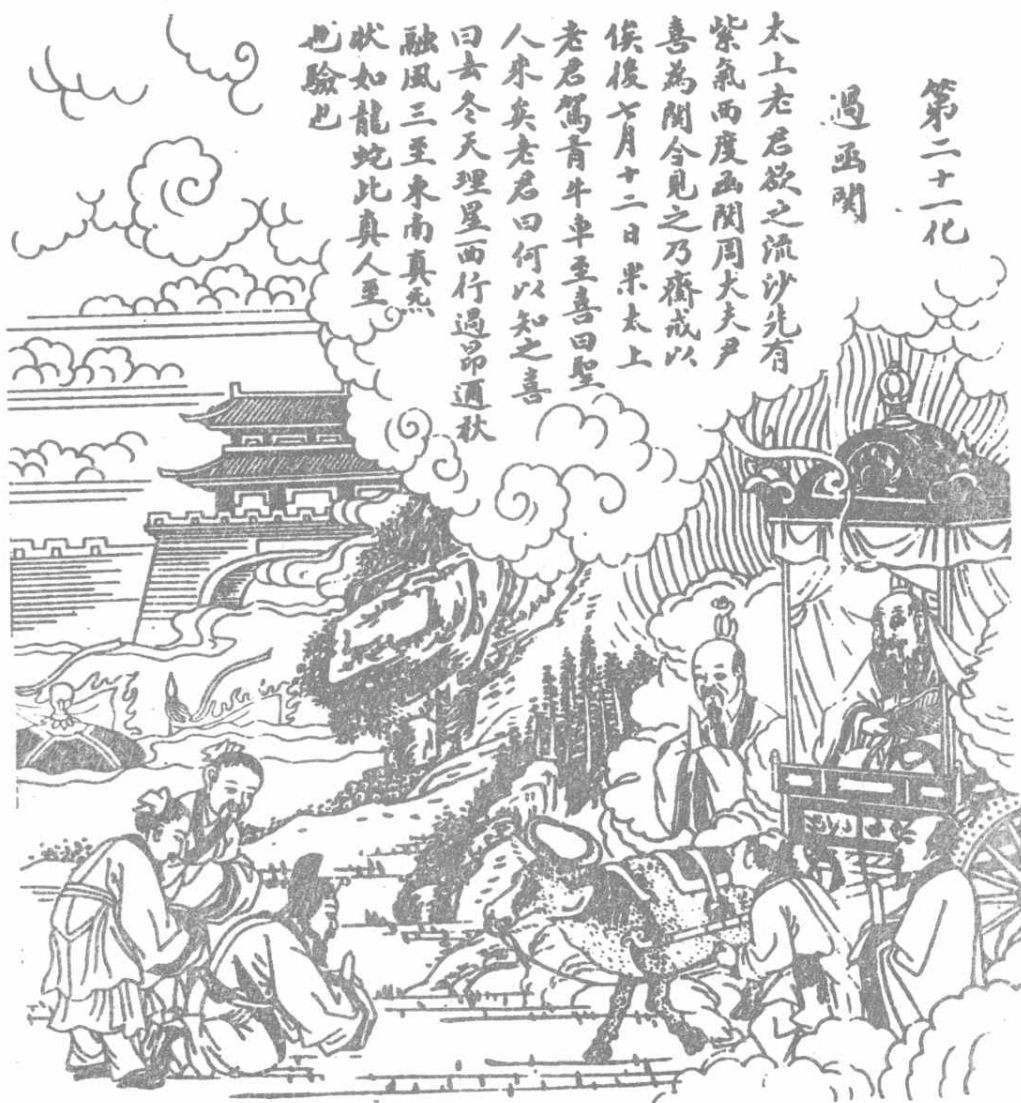 第二十一化
過函関
太上老君欲之流沙先有
紫氣西度函関周大夫尹
喜為関令見之乃齋戒以
俟後七月十二日果太上
老君駕青牛車至喜曰聖
人來矣老君曰何以知之喜
曰去冬天理星西行過昴迺秋
融風三至東南真炁
狀如龍蛇此真人至
也驗也